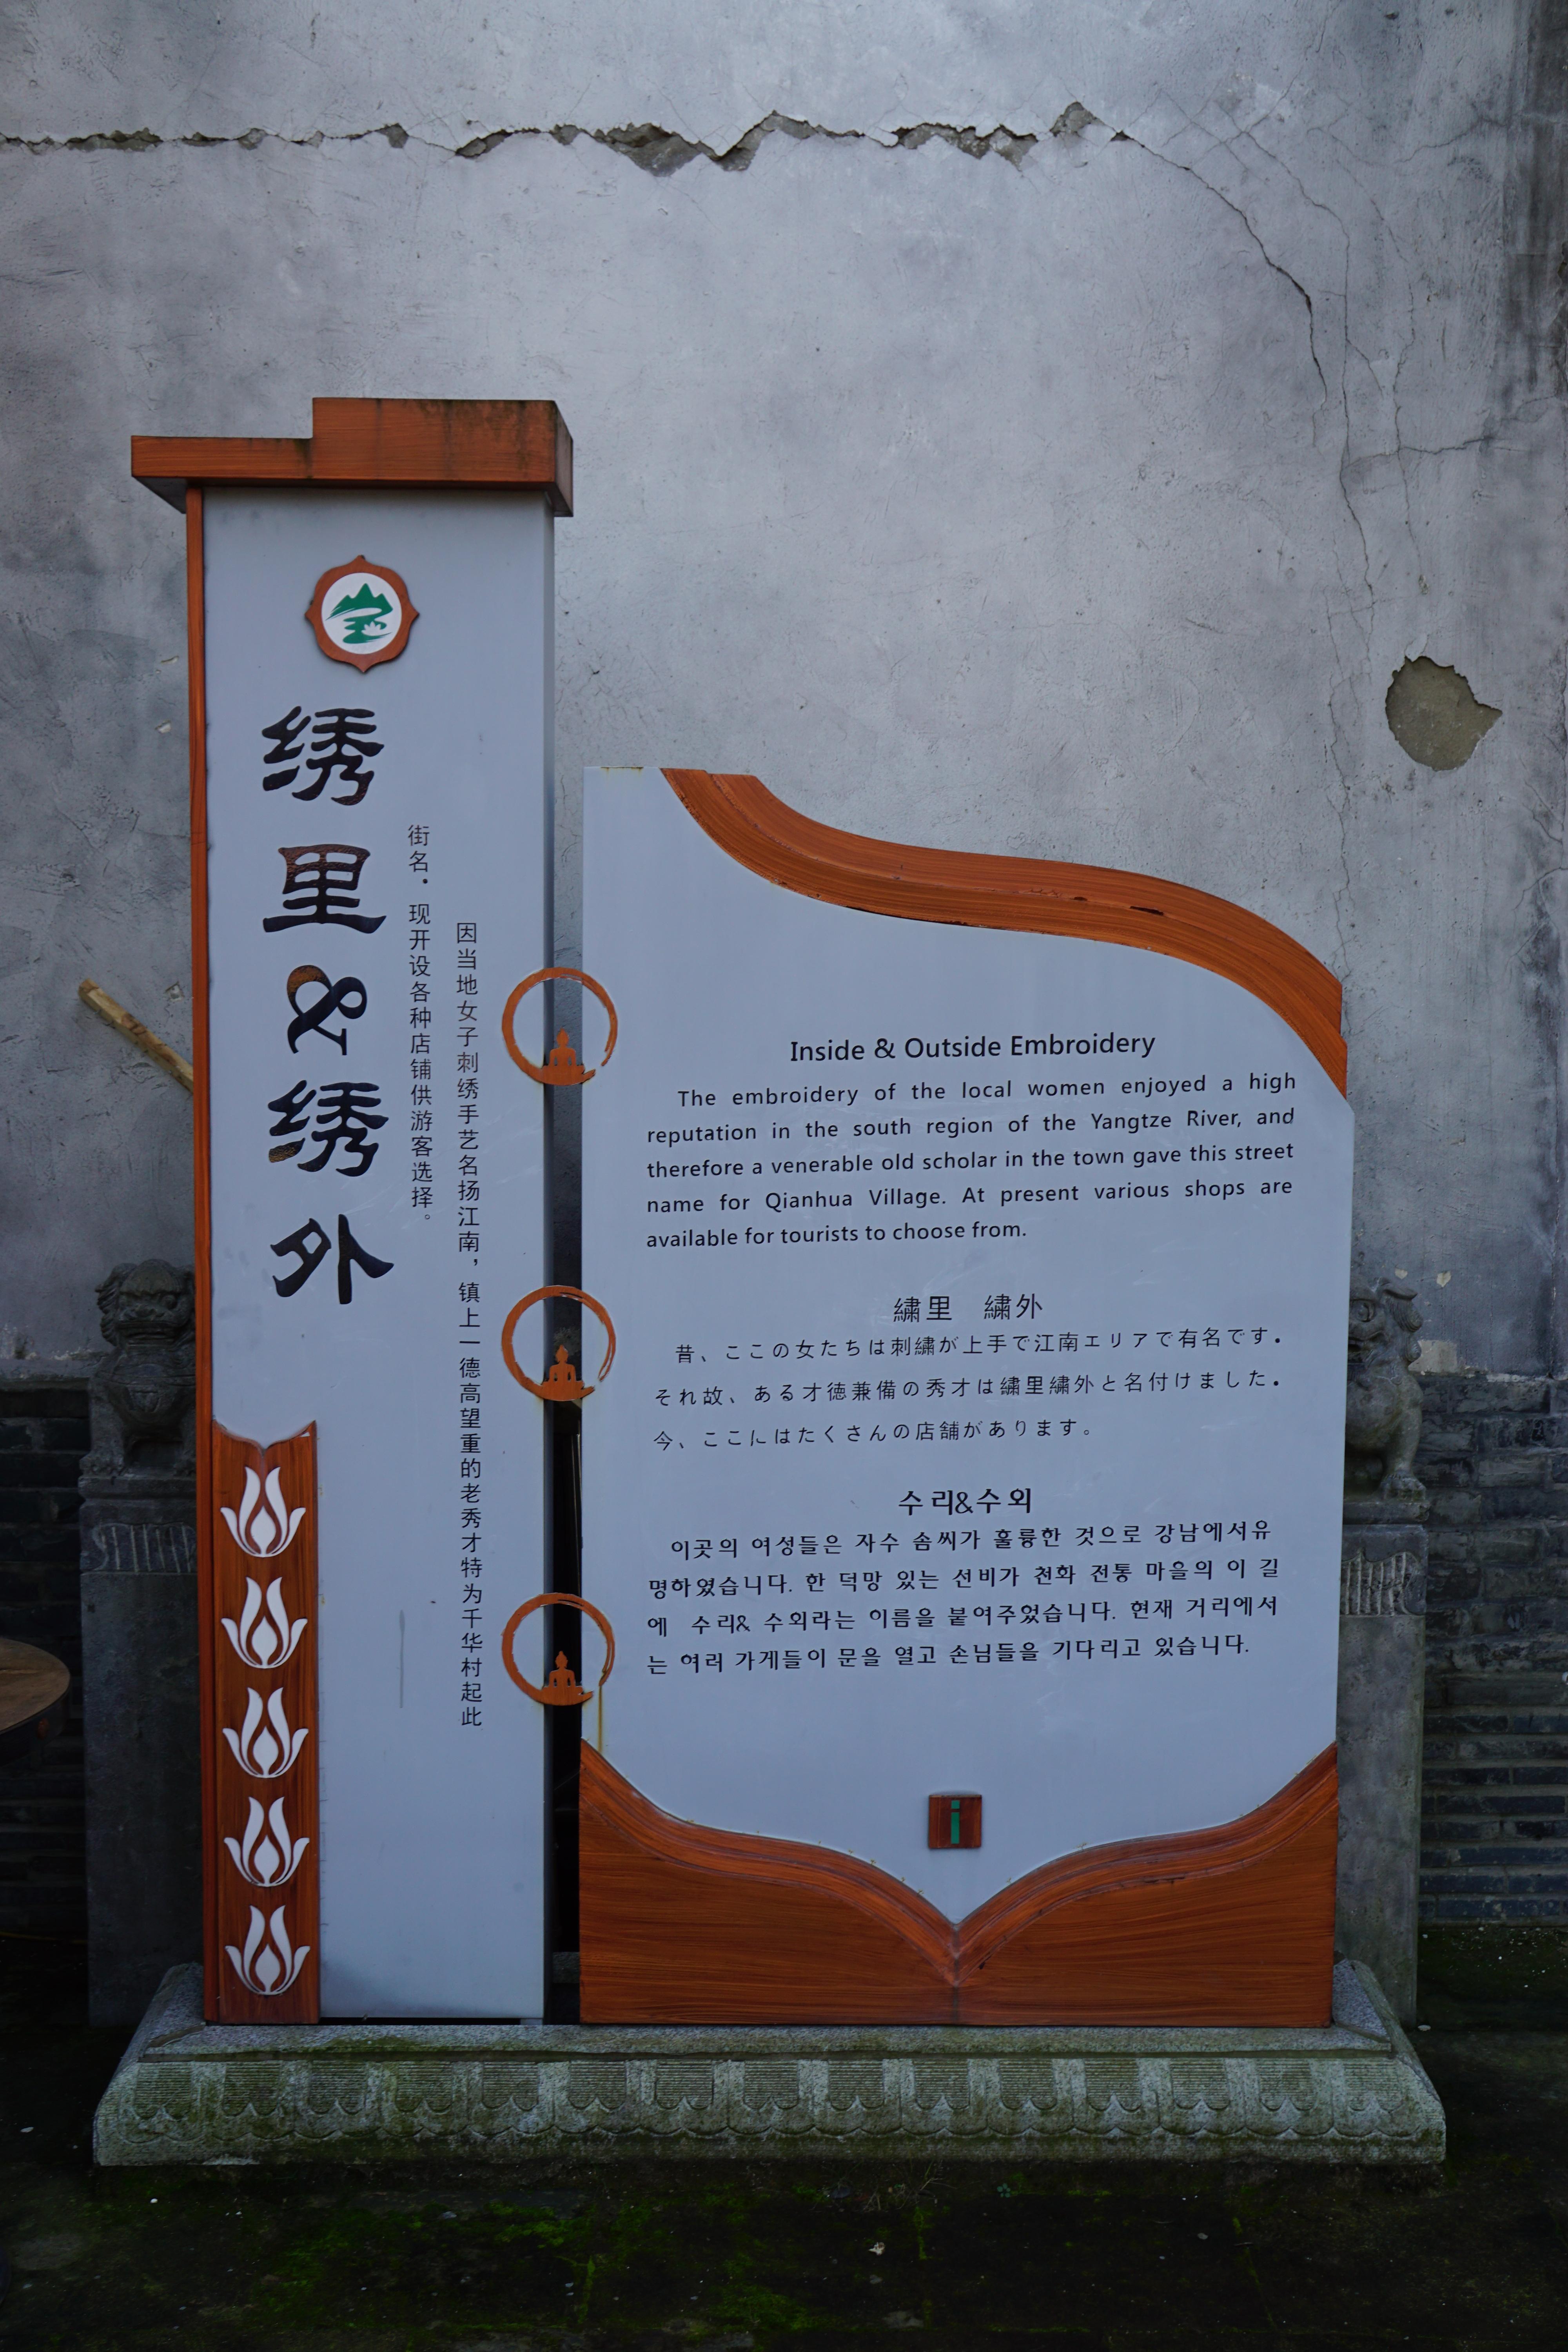 绣里&绣外
因当地女子刺绣手艺名扬江南，镇上一德高望重的老秀才特为千华村起此
街名．现开设各种店铺供游客选择。
Inside & Outside Embroidery
The embroidery of the local women enjoyed a high
reputation in the south region of the Yangtze River, and
therefore a venerable old scholar in the town gave this street
name for Qianhua Village. At present various shops are
available for tourists to choose from.
繍里　繍外
昔、ここの女たちは刺繍が上手で江南エリアで有名です．
それ故、ある才徳兼備の秀才は繍里繍外と名付けました．
今、ここにはたくさんの店舗があります。
수리&수외
이곳의 여성들은 자수 솜씨가 훌륭한 것으로 강남에서유
명하였습니다. 한 덕망 있는 선비가 천화 전통 마을의 이 길
에 수리& 수외라는 이름을 붙여주었습니다. 현재 거리에서
는 여러 가게들이 문을 열고 손님들을 기다리고 있습니다.
i